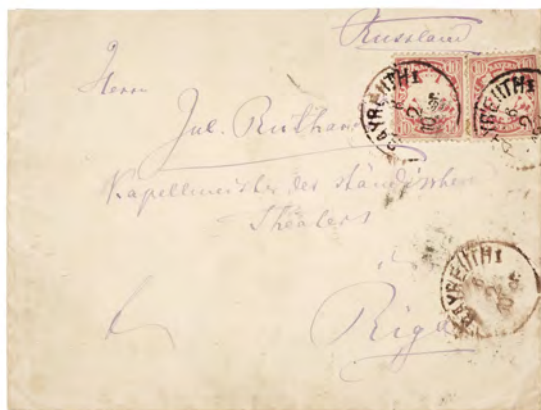 Russland
Herrn
Jul. Ruthardt
Kapellmeister des ständischen
Theaters
in
Riga
BAYREUTH I
BAYREUTH I
BAYREUTH I
10
10